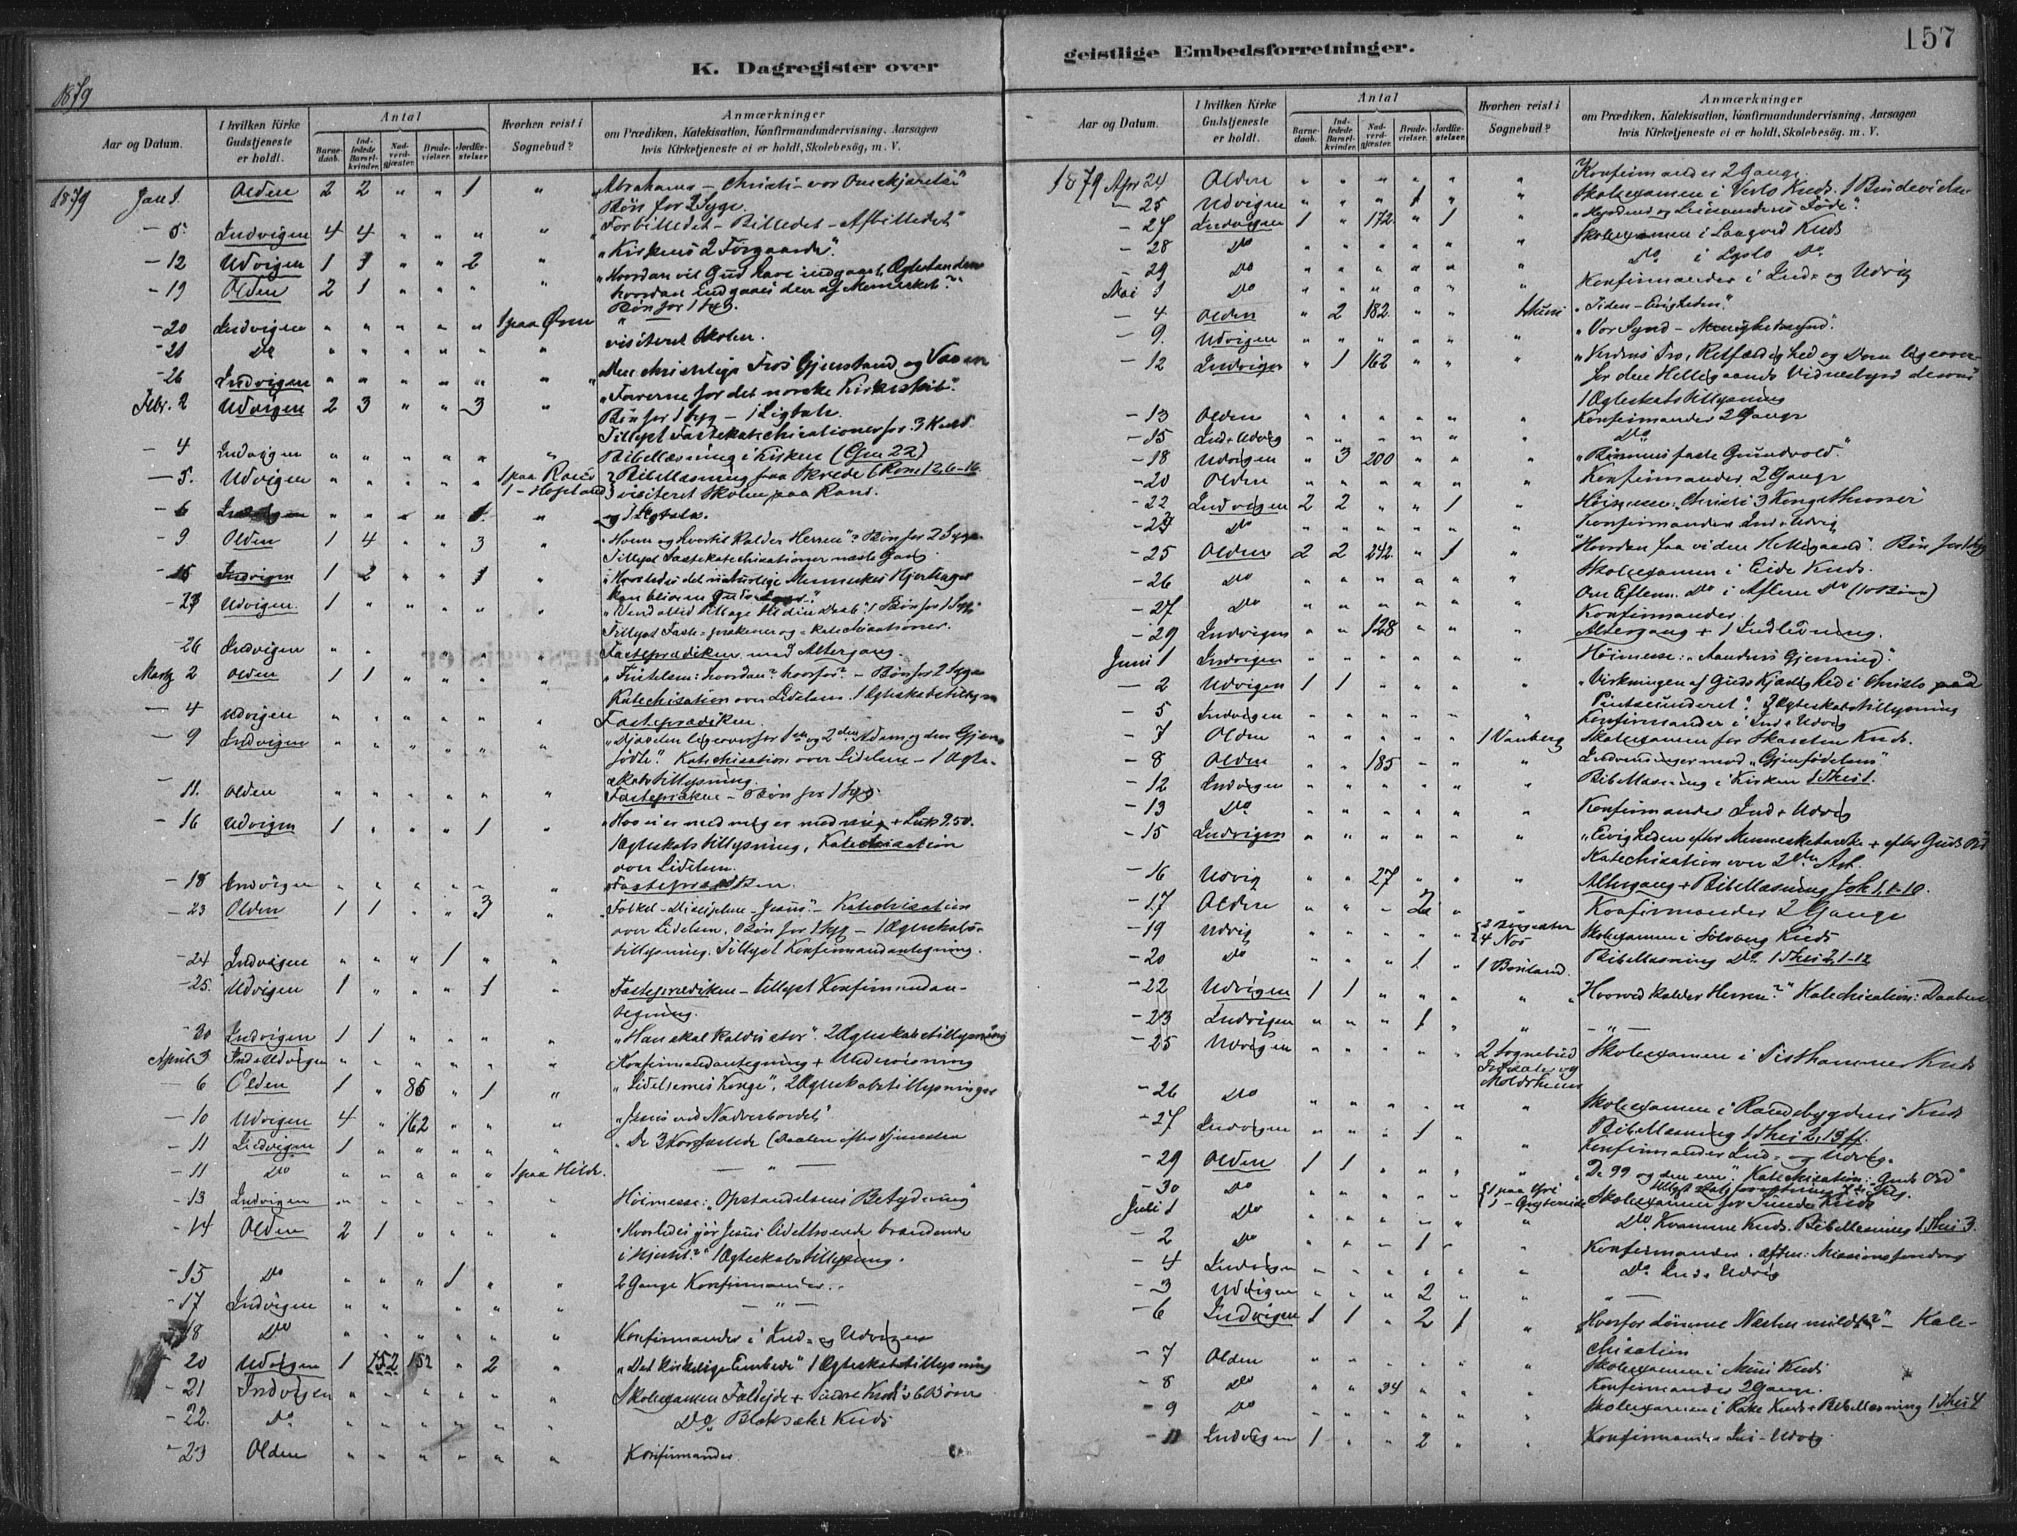 157
K. Dagregister over
geistlige Embedsforretninger.
1879
Aar og Datum.
I hvilken Kirke Gudstjeneste er holdt.
Antal
Barnedaab.
Indledede Barselkvinder.
Nadverdgjæster.
Brudevielser.
Jordfæstelser.
Hvorhen reist i Sognebud?
Anmærkninger
om Prædiken, Katekisation, Konfirmandundervisning, Aarsagen
hvis Kirketjeneste ei er holdt, Skolebesøg, m. V.
1879 Jan 1. Olden 2 2 " " 1 " "Abrahams – Christi – vor Omskjærelse"
Bøn for 2 Syge.
– 5. Indvigen 4 4 " " " " "Forbilledet – Billedet – Afbilledet"
– 12 Udvigen 1 1 " " 2 " "Kirkens 2 Forgaarde".
– 19 Olden 2 1 " " " " "Hvordan vil Gud have indgaaet Ægtestanden
hvordan indgaaes den af Mennesket?"
Bøn for 1 Syg.
– 20 Indvigen " " " " " 1 paa "
– 21 Do " " " " " " visiteret Skolen.
– 26 Indvigen " " " " " " "Den christelige Tros Gjenstand og Vaaben
Febr. 2 Udvigen 2 3 " " 3 " "Farerne for det norske Kirkeskib".
Bøn for 1 Syg – 1 Ligtale.
Tillyst Fastekatechisationer for 3 Kreds
– 4 Indvigen " " " " " " Bibellæsning i Kirken (Gen 22)
– 5. Udvigen " " " " " 1 paa Bibellæsning paa Skrede (Rom 12,6–16
1 – visiteret Skolen paa Rand.
– 6 " " " " 1. " og 1 Ligtale.
– 9 Olden 1 4 " " 3 " "Hvem og Hvortil kalder Herren"? Bøn for 2 Syge
Tillyst Fastekatechisationer næste Gang
Indvigen 1 2 " " 1 " "Hvorledes det naturlige Menneskes Hjerteager
kan blive en Guds
– 23 Udvigen. 1 " " " " " "Vend altid tilbage til din Daab". 1 Bøn for 1 Syg
Tillyst Faste-prækener og -katechisationer.
– 26 Indvigen " " " " " " Fasteprædiken med Altergang.
Marts 2 Olden 1 1 " " " " "Fristelsen: hvordan? hvorfor? – Bøn for 2 Syge
Katechisation over Lidelsen. 1 Ægteskabstillysn
– 4 Udvigen " " " " " " Fasteprædiken.
– 9 Indvigen " " " " " " "Djævelen ligeoverfor 1ste og 2den Adam og den Gjen-
fødte". Katechisation over Lidelsen – 1 Ægte-
skabstillysning.
– 11. Olden " " " " " " Fastepræken – Bøn for 1 Syg
– 16 Udvigen 1 " " " 1 " "Hvo ei er med mig er mod mig + Luk 9.50.
1 Ægteskabstillysning, Katechisation
over Lidelsen.
– 18 Indvigen " " " " " " Fasteprædiken.
– 23 Olden 1 1 " " 3 " "Folket – Disciplene – Jesus". – Katechisation
over Lidelsen. Bøn for 1 Syg – 1 Ægteskabs-
tillysning. Tillyst Konfirmandantegning.
– 24 Indvigen " " " 1 " "
– 25. Udvigen 1 " " " 1 " Fasteprædiken – tillyst Konfirmandan-
tegning.
– 30 Indvigen 1 1 " " " " "Han skal kaldes stor". 2 Ægteskabstillysning
April 3 Ind & Udvigen " " " " " " Konfirmandantegning + Undervisning
– 6 Olden 1 " 86 " 1 " "Lidelsernes Konge", 2 Ægteskabstillysninger
– 10 Udvigen 4 " 162 " " " "Jesus ved Nadverbordet"
– 11 Indvigen 1 " " " " " "De 3 Korsfæstede (Daaben efter Tjenesten
– 11 Do " " " " " 1 paa Hilde. – " –
– 13 Indvigen " " " " " " Høimesse: "Opstandelsens Betydning"
– 14 Olden 2 1 " " " " "Hvorledes gjør Jesus lidettroende brændende
i Hjertet?" 1 Ægteskabstillysning.
– 15 Do " " " 1 " " 2 Gange Konfirmander.
– 17 Indvigen " " " " " " – " –
– 18 Do " " " " " " Konfirmander i Ind- og Udvigen
– 20 Udvigen 1 152 152 " 2 " "Det kirkelige Embede" 1 Ægteskabstillysning
– 21 Indvigen " " " " " " Skoleexamen + Kreds
– 22. Do " " " " " " Do Blaksæter Kreds
– 23 Olden " " " " " " Konfirmander
Aar og Datum.
I hvilken Kirke Gudstjeneste er holdt.
Antal
Barnedaab.
Indledede Barselkvinder.
Nadverdgjæster.
Brudevielser.
Jordfæstelser.
Hvorhen reist i Sognebud?
Anmærkninger
om Prædiken, Katekisation, Konfirmandundervisning, Aarsagen
hvis Kirketjeneste ei er holdt, Skolebesøg, m. V.
1879 Apr 24 Olden " " " " " " Konfirmander 2 Gange
– 25 Udvigen " " " 1 " " Skoleexamen i Kreds.
– 27 Indvigen 1 " 172 " 1 "
– 28 Do " " " " " " Skoleexamen i Kreds
– 29 Do " " " " " " Do i Do
Mai 1 Do " " " " " " Konfirmander i Ind- og Udvig
– 4 Olden " 2 182 " " 1 Muri "Tiden – Evigheden".
– 9. Udvigen " " " " " " "Vor Synd – Menighedssynd".
– 12 Indvigen " 1 162 " " " "Verdens Tro, Retfærdighed og Dom ligeover-
for den Helligaands Vidnesbyrd desom"
1 Ægteskabstillysning
– 13 Olden " " " " " " Konfirmander 2 Gange
– 15 Ind + Udvig " " " " " " Do
– 18 Udvigen " 3 200 " " " "Bønnens faste Grundvold".
– 20 Olden " " " " " " Konfirmander 2 Gange
– 22 Indvigen 2 2 " " 1 " Høimesse: "Christi 3 Kongethroner"
– 23 Do " " " " " " Konfirmander Ind + Udvig
– 25 Olden 2 2 242 " 1 " "Hvordan faa vi den Helligaand". Bøn for 1 Syg
– 26 Do " " " " " " Skoleexamen i Eide Kreds.
– 27 Do " " " " " " Om Eftem. Do i Aflem Do (10 Børn)
Konfirmander
– 29 Indvigen " " 128 " " " Altergang + 1 Indledning.
Juni 1 Indvigen " " " " " " Høimesse: "Aandens Gjerning".
– 2 Udvigen 1 1 " " " " "Virkningen af Guds Kjærlighed i Christo paa
Pintseunderet". Ægteskabstillysning
– 5 Indvigen " " " " " " Konfirmander i Ind & Udvig
– 7 Olden " " " " " 1 Vanberg Skoleexamen for Kreds.
– 8 Olden " " 185 " " " Indvendinger mod "Gjenfødelsen"
– 12 Indvigen " " " " " " Bibellæsning i Kirken 1 Thes 1.
– 13 Do " " " " " " Konfirmander Ind + Udvig
– 15 Indvigen " " " " " " "Evigheden efter Mennesketanke + efter Guds Ord
Katechisation over 2den Art.
– 16 Udvig " " 27 " " " Altergang + Bibellæsning Joh 1,1–10.
– 17 Olden " " " 2 " " Konfirmander 2 Gange
– 19 Udvig " " " " " 4 Nos Skoleexamen i Solvberg Kreds
– 20 Do " " " 1 " 1 Bibellæsning Do. 1 Thes 2,1–12
– 22 Udvigen 1 1 " " " " "Hvorved kalder Herren?" Katechisation: Daaben
– 23 Indvigen " " " 1 " " – " –
– 25 Udvigen 2 Sognebud og Moldrheim Skoleexamen i Kreds
– 26 Do " " " " " " Skoleexamen i Randebygdens Kreds
– 27 Indvigen " " " 1 " " Bibellæsning 1 Thes 2,13 ff.
Konfirmander Ind- og Udvig.
– 29 Olden 1 1 " " " " "De 99 og den ene". Katechisation: Guds Ord
– 30 Do " " " " " 1 paa Skoleexamen for Kreds
Juli 1 Do " " " " " " Do Kvamme Kreds. Bibellæsning 1 Thes 3.
– 2 Do " " " 1 " " Konfirmander. aften: Missionsforedrag
– 4 Indvigen " " " " " " Do Ind & Udvig
– 3 Udvigen " " " 2 " " – " –
– 6 Indvigen 1 1 " 2 1 " "Hvorfor dømme Næsten mildt?" – Kate-
chisation
– 7 Olden " " " " " " Skoleexamen i Muri Kreds
– 8 Do " " 34 " " " Konfirmander 2 Gange.
– 9 Do " " " " " " Skoleexamen i Kreds + Bibellæsning 1 Thes 4
– 11 Indvigen 1 " " 2 " " Konfirmander Ind- Udvig